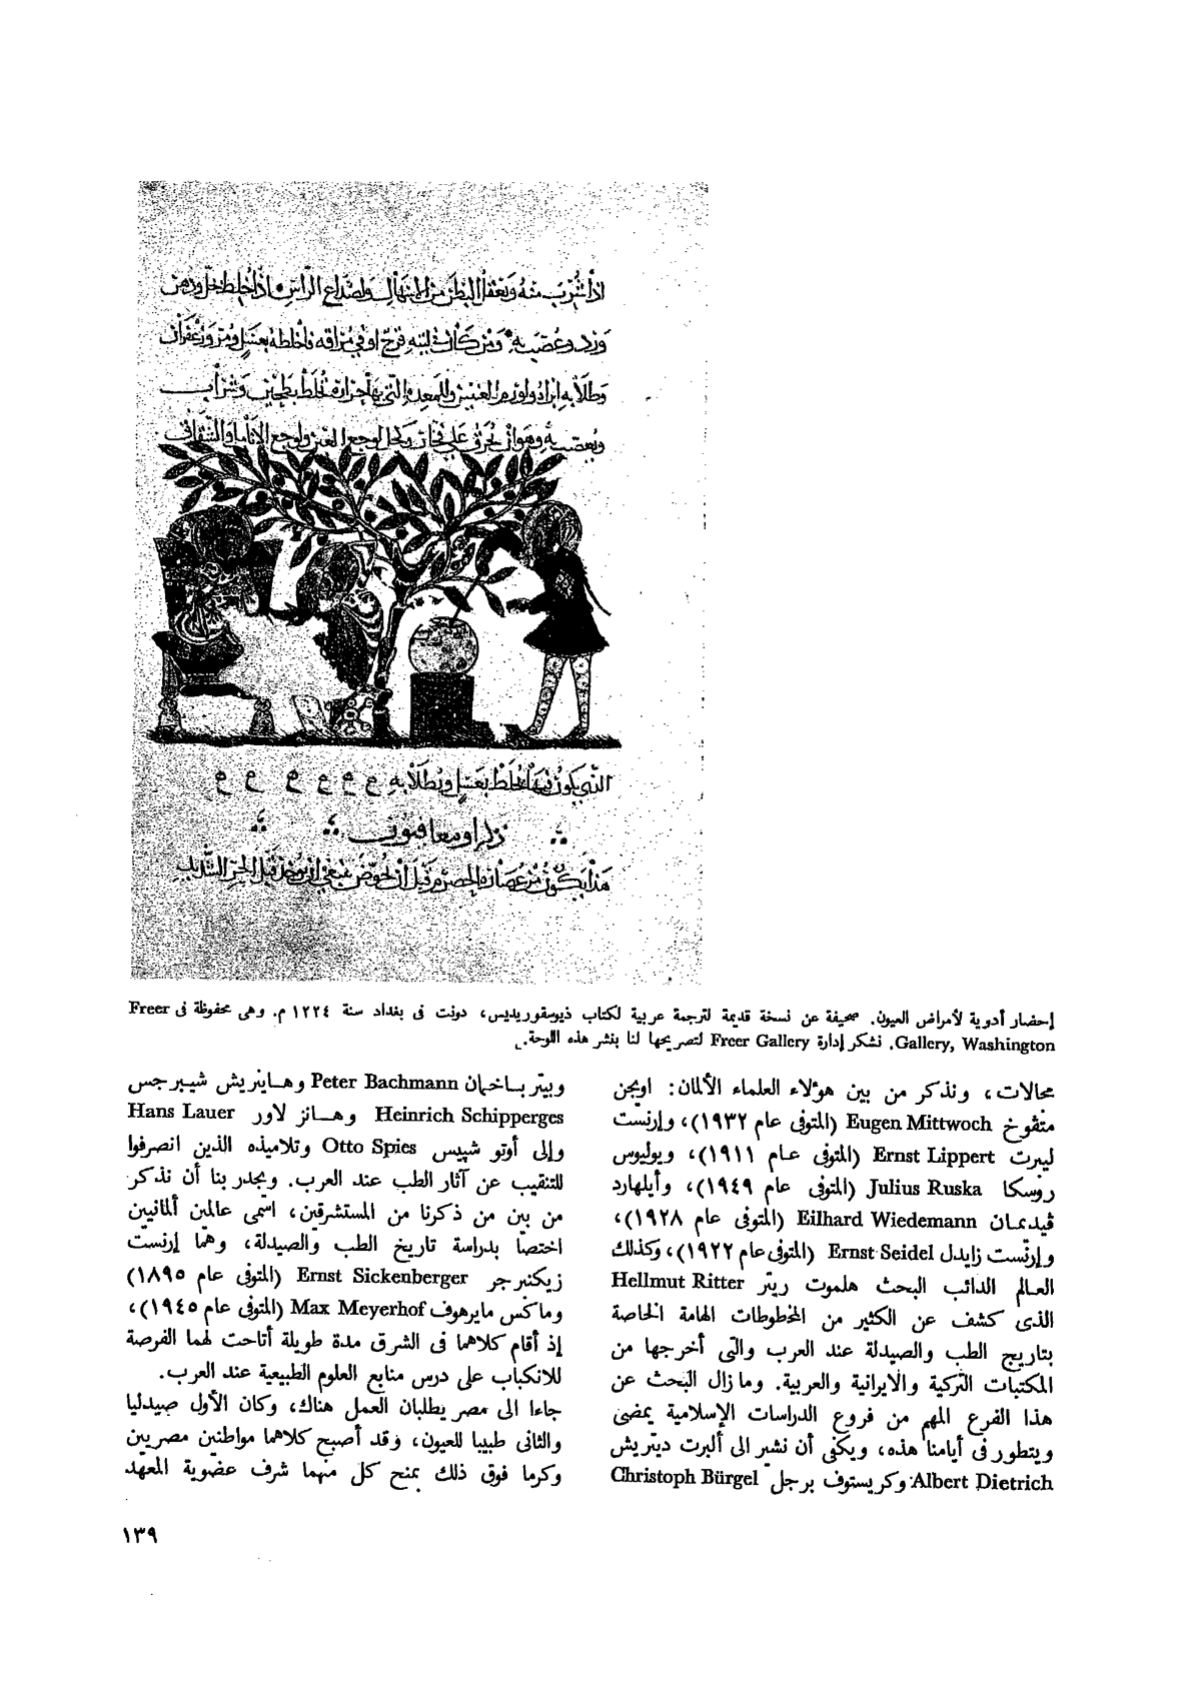 اذا شرب منه وتعقل البطن من الاسهال ولصداع الراس اذا خلط بخل ودهن
ورد وعصب به ومن كان فى لثته قرح او فى مراقه فاخلطه بعسل ومر وزعفران
وللمعدة التى بها حرارة يخلط بطحين وشراب
ويعصب به
التى يكون فيها يخلط بعسل ويطلا به ع ع ع ع ع ع
ذكر اومعافيون
هذا يكون من عصارة الحصرم قبل ان يحوض ينبغى ان
إحضار أدوية لأمراض العيون. صحيفة عن نسخة قديمة لترجمة عربية لكتاب ذيوسقوريديس، دونت فى بغداد سنة ١٢٢٤ م. وهى محفوظة فى Freer
Gallery, Washington. نشكر إدارة Freer Gallery لتصريحها لنا بنشر هذه اللوحة.
مجالات، ونذكر من بين هؤلاء العلماء الألمان: اويجن
متفوخ Eugen Mittwoch (المتوفى عام ١٩٣٢)، وإرنست
ليبرت Ernst Lippert (المتوفى عام ١٩١١)، ويوليوس
روسكا Julius Ruska (المتوفى عام ١٩٤٩)، وأيلهارد
ڤيدمان Eilhard Wiedemann (المتوفى عام ١٩٢٨)،
وإرنست زايدل Ernst Seidel (المتوفى عام ١٩٢٢)، وكذلك
العالم الدائب البحث هلموت ريتر Hellmut Ritter
الذى كشف عن الكثير من المخطوطات الهامة الخاصة
بتاريخ الطب والصيدلة عند العرب والتى أخرجها من
المكتبات التركية والايرانية والعربية. وما زال البحث عن
هذا الفرع المهم من فروع الدراسات الإسلامية يمضى
ويتطور فى أيامنا هذه، ويكفى أن نشير الى ألبرت ديتريش
Albert Dietrich وكريستوف برجل Christoph Bürgel
وبيتر باخمان Peter Bachmann وهاينريش شيبرجس
Heinrich Schipperges وهانز لاور Hans Lauer
وإلى أوتو شپيس Otto Spies وتلاميذه الذين انصرفوا
للتنقيب عن آثار الطب عند العرب. ويجدر بنا أن نذكر
من بين من ذكرنا من المستشرقين، اسمى عالمين ألمانيين
اختصا بدراسة تاريخ الطب والصيدلة، وهما إرنست
زيكنبرجر Ernst Sickenberger (المتوفى عام ١٨٩٥)
وماكس مايرهوف Max Meyerhof (المتوفى عام ١٩٤٥)،
إذ أقام كلاهما فى الشرق مدة طويلة أتاحت لهما الفرصة
للانكباب على درس منابع العلوم الطبيعية عند العرب.
جاءا الى مصر يطلبان العمل هناك، وكان الأول صيدليا
والثانى طبيبا للعيون، وقد أصبح كلاهما مواطنين مصريين
وكرما فوق ذلك بمنح كل منهما شرف عضوية المعهد
١٣٩